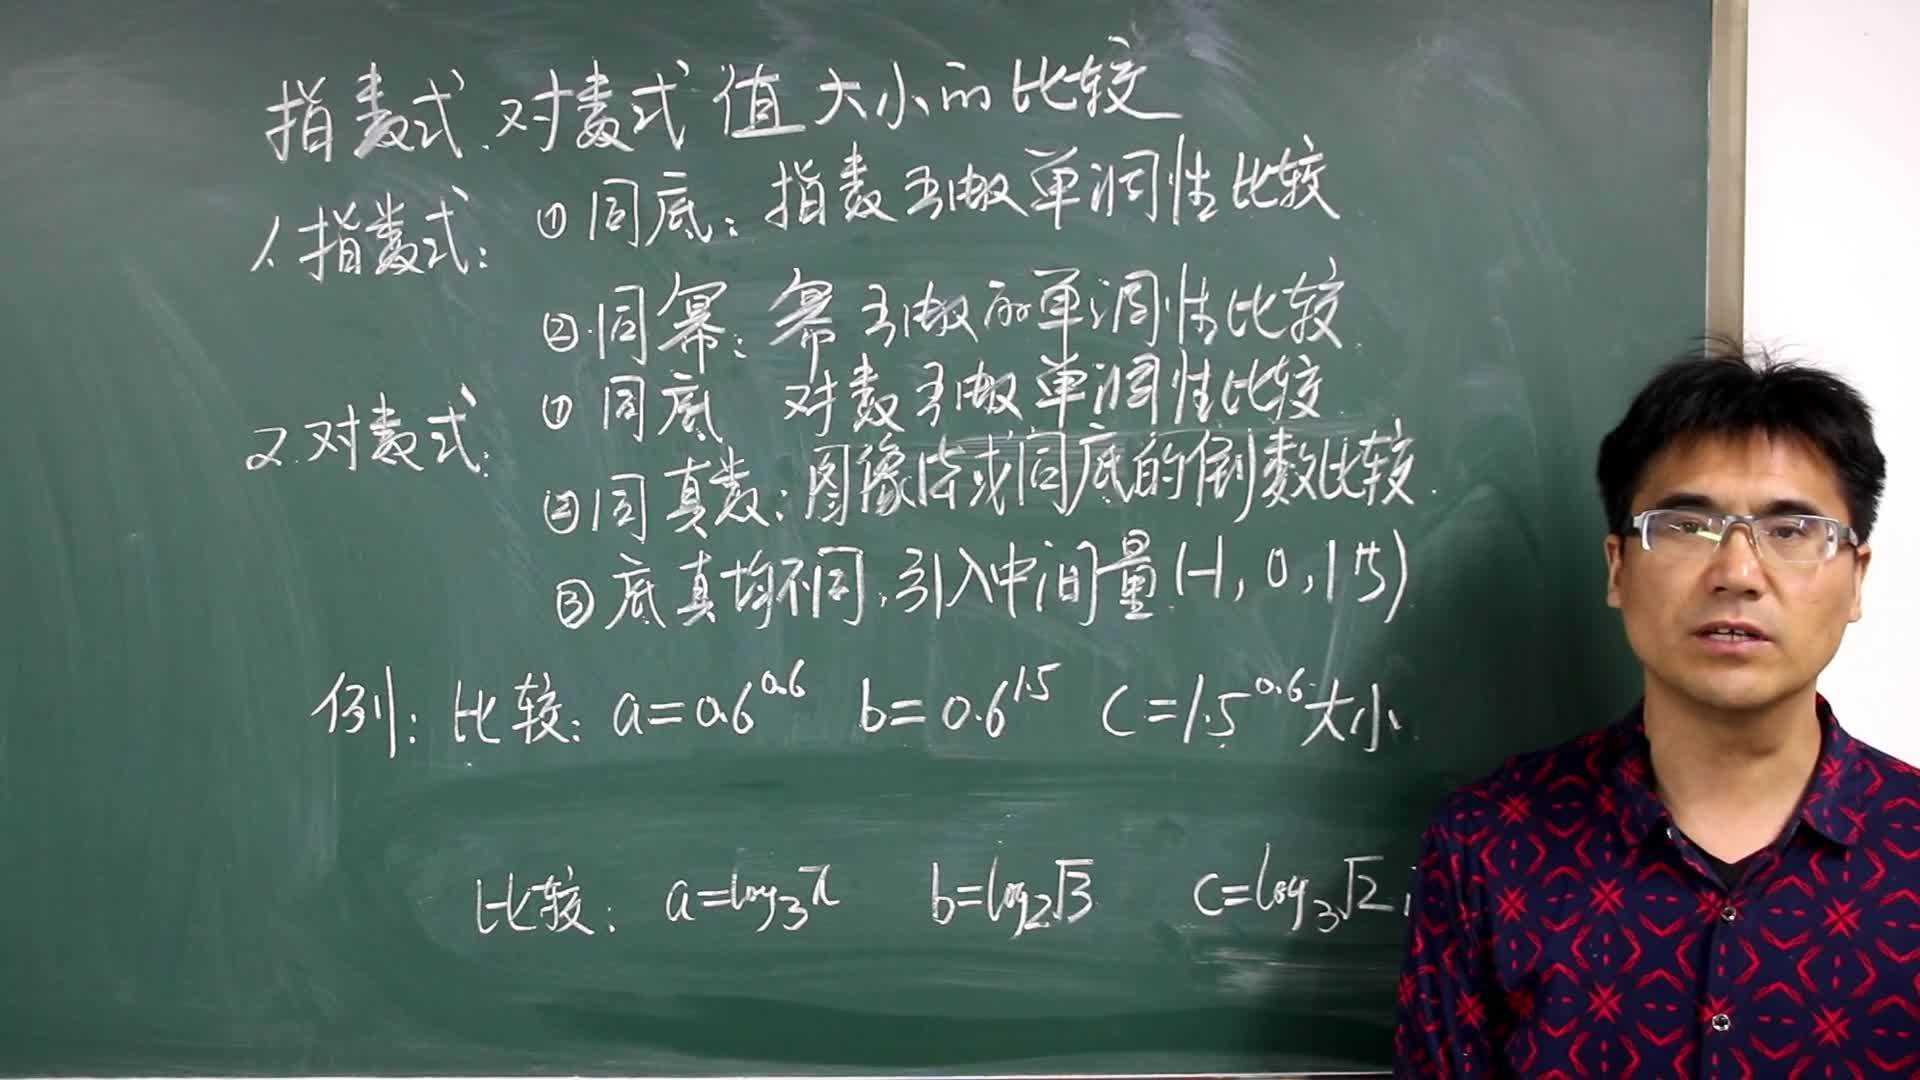 指数式、对数式值大小的比较
1、指数式: ①同底: 指数函数单调性比较
②同幂: 幂函数的单调性比较
2.对数式: ①同底 对数函数单调性比较
②同真数: 图像法或同底的倒数比较.
③底真均不同,引入中间量(-1, 0, 1等)
例: 比较: a=0.6^0.6 b=0.6^1.5 c=1.5^0.6 大小.
比较: a=log₃π b=log₂√3 c=log₃√2